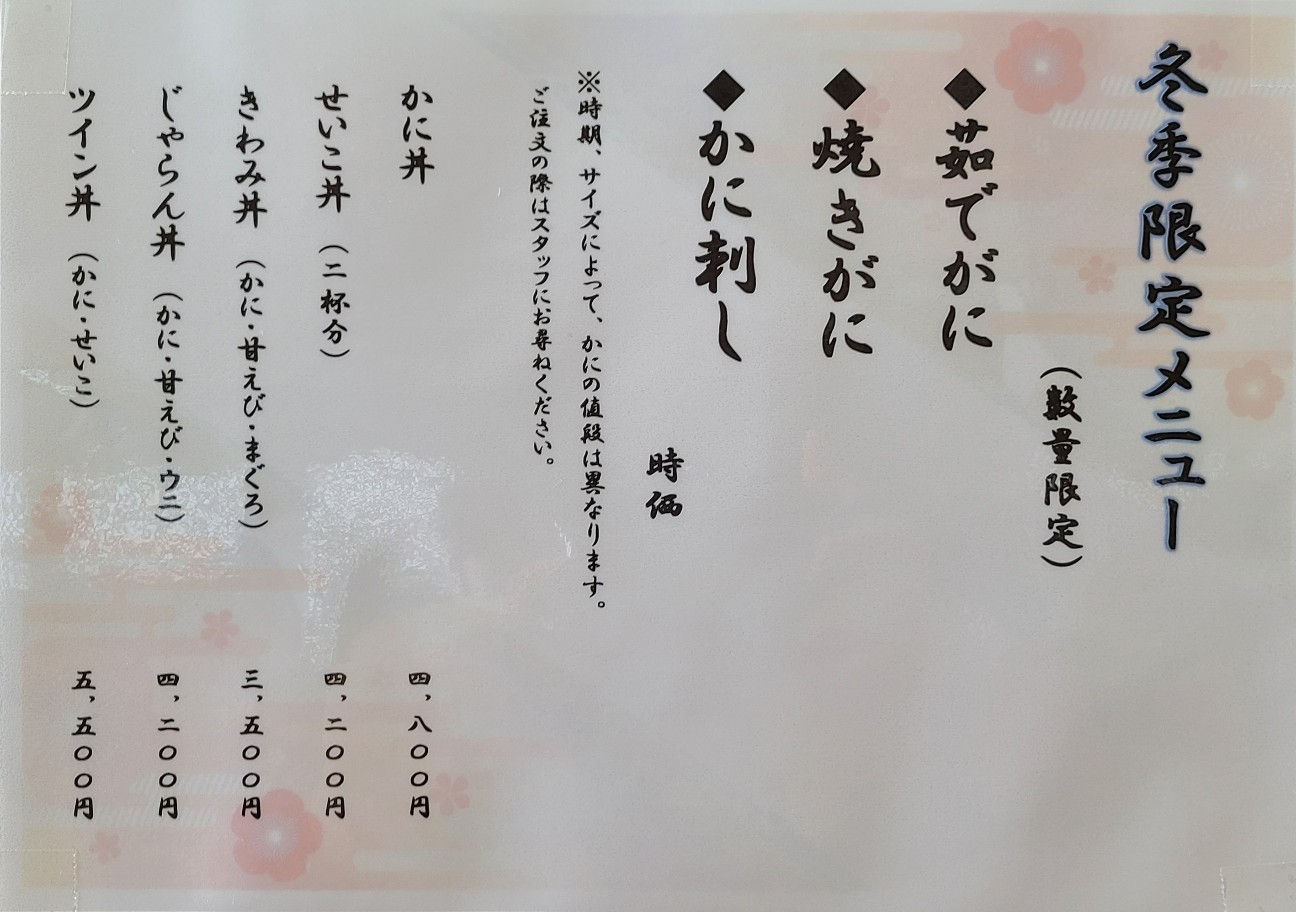 冬季限定メニュー
（数量限定）
◆茹でがに
◆焼きがに
◆かに刺し
時価
※時期、サイズによって、かにの値段は異なります。
ご注文の際はスタッフにお尋ねください。
かに丼 四,八〇〇円
せいこ丼（二杯分） 四,二〇〇円
きわみ丼（かに・甘えび・まぐろ） 三,五〇〇円
じゃらん丼（かに・甘えび・ウニ） 四,二〇〇円
ツイン丼（かに・せいこ） 五,五〇〇円